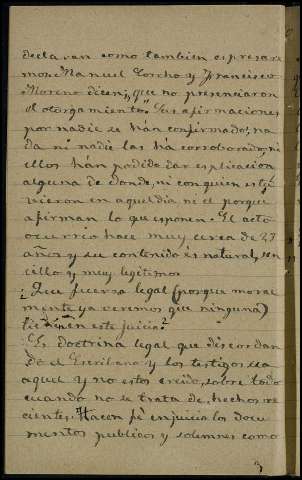 declaran como tambien espresare
mos. Manuel Corcho y Francisco
Moreno dicen, que no presenciaron
el otorgamiento. Sus afirmaciones
por nadie se hán confirmado; na
da ni nadie las ha corroborado; ni
ellos hán podido dar esplicación
alguna de donde, ni con quien estu
vieron en aquel dia ni el porque
afirman lo que esponen. El acto
ocurrió hace muy cerca de 27
años y su contenido és natural, sen
cillo y muy legitimo
¿Que fuerza legal (porque moral
mente ya veremos que ninguna)
tienen en este juicio?
Es doctrina legal que discordan
do el Escribano y los testigos sea
aquel y no estos creido, sobre todo
cuando no se trata de hechos re
cientes. Hacen fé en juicio los docu
mentos publicos y solemnes como